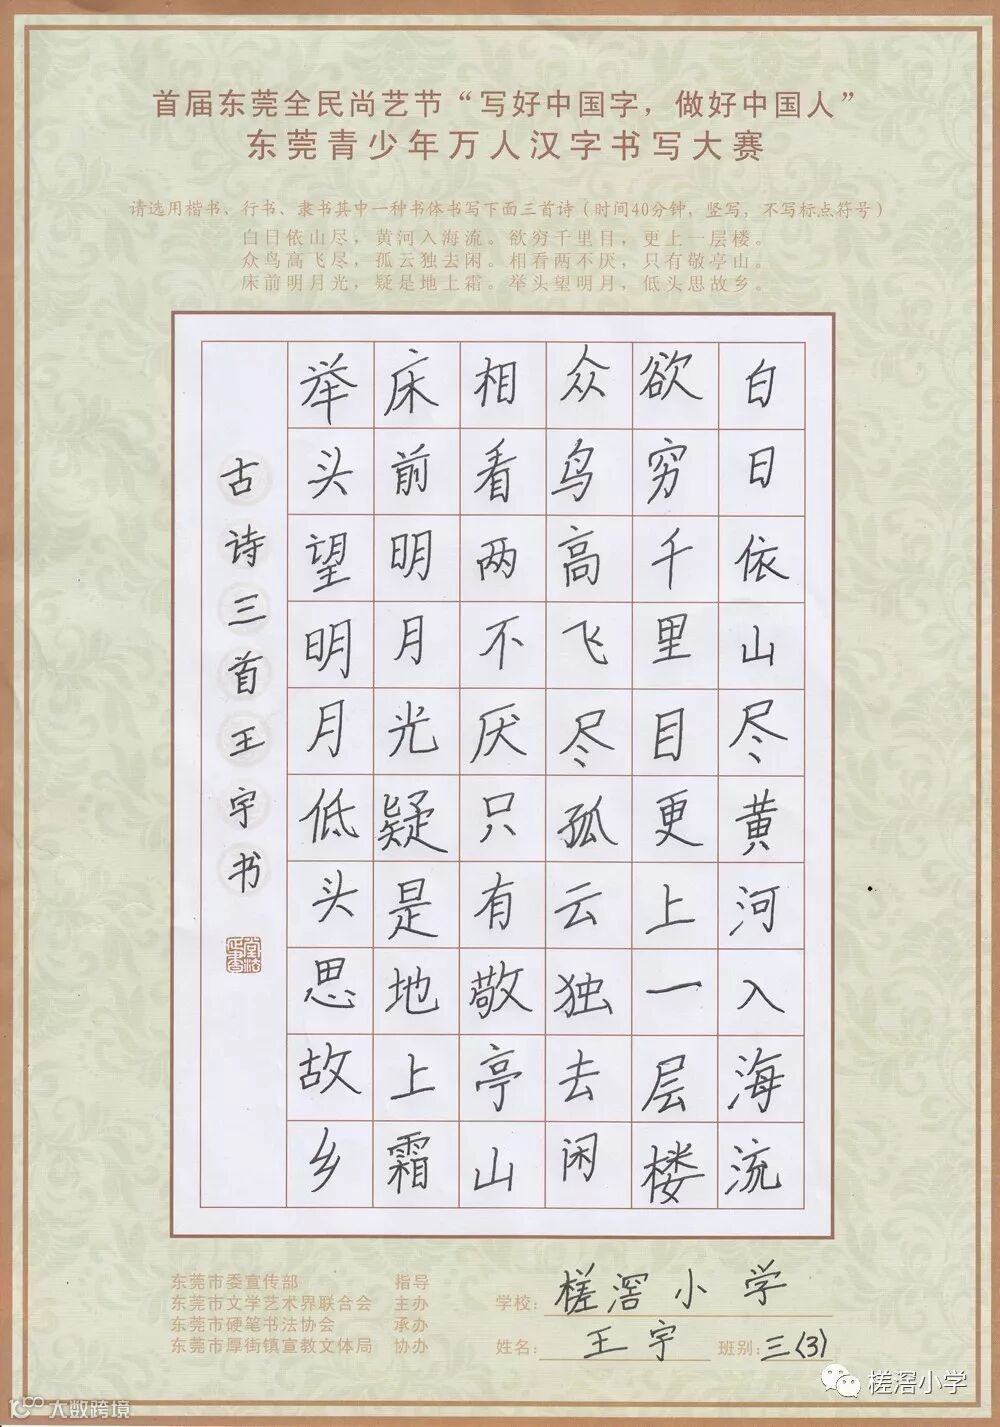 首届东莞全民尚艺节“写好中国字，做好中国人”
东莞青少年万人汉字书写大赛
请选用楷书、行书、隶书其中一种书体书写下面三首诗（时间40分钟，竖写，不写标点符号）
白日依山尽，黄河入海流。欲穷千里目，更上一层楼。
众鸟高飞尽，孤云独去闲。相看两不厌，只有敬亭山。
床前明月光，疑是地上霜。举头望明月，低头思故乡。
白日依山尽黄河入海流
欲穷千里目更上一层楼
众鸟高飞尽孤云独去闲
相看两不厌只有敬亭山
床前明月光疑是地上霜
举头望明月低头思故乡
古诗三首王宇书
东莞市委宣传部 指导
东莞市文学艺术界联合会 主办
东莞市硬笔书法协会 承办
东莞市厚街镇宣教文体局 协办
学校：槎滘小学
姓名：王宇 班别：三(3)
槎滘小学
大数跨境